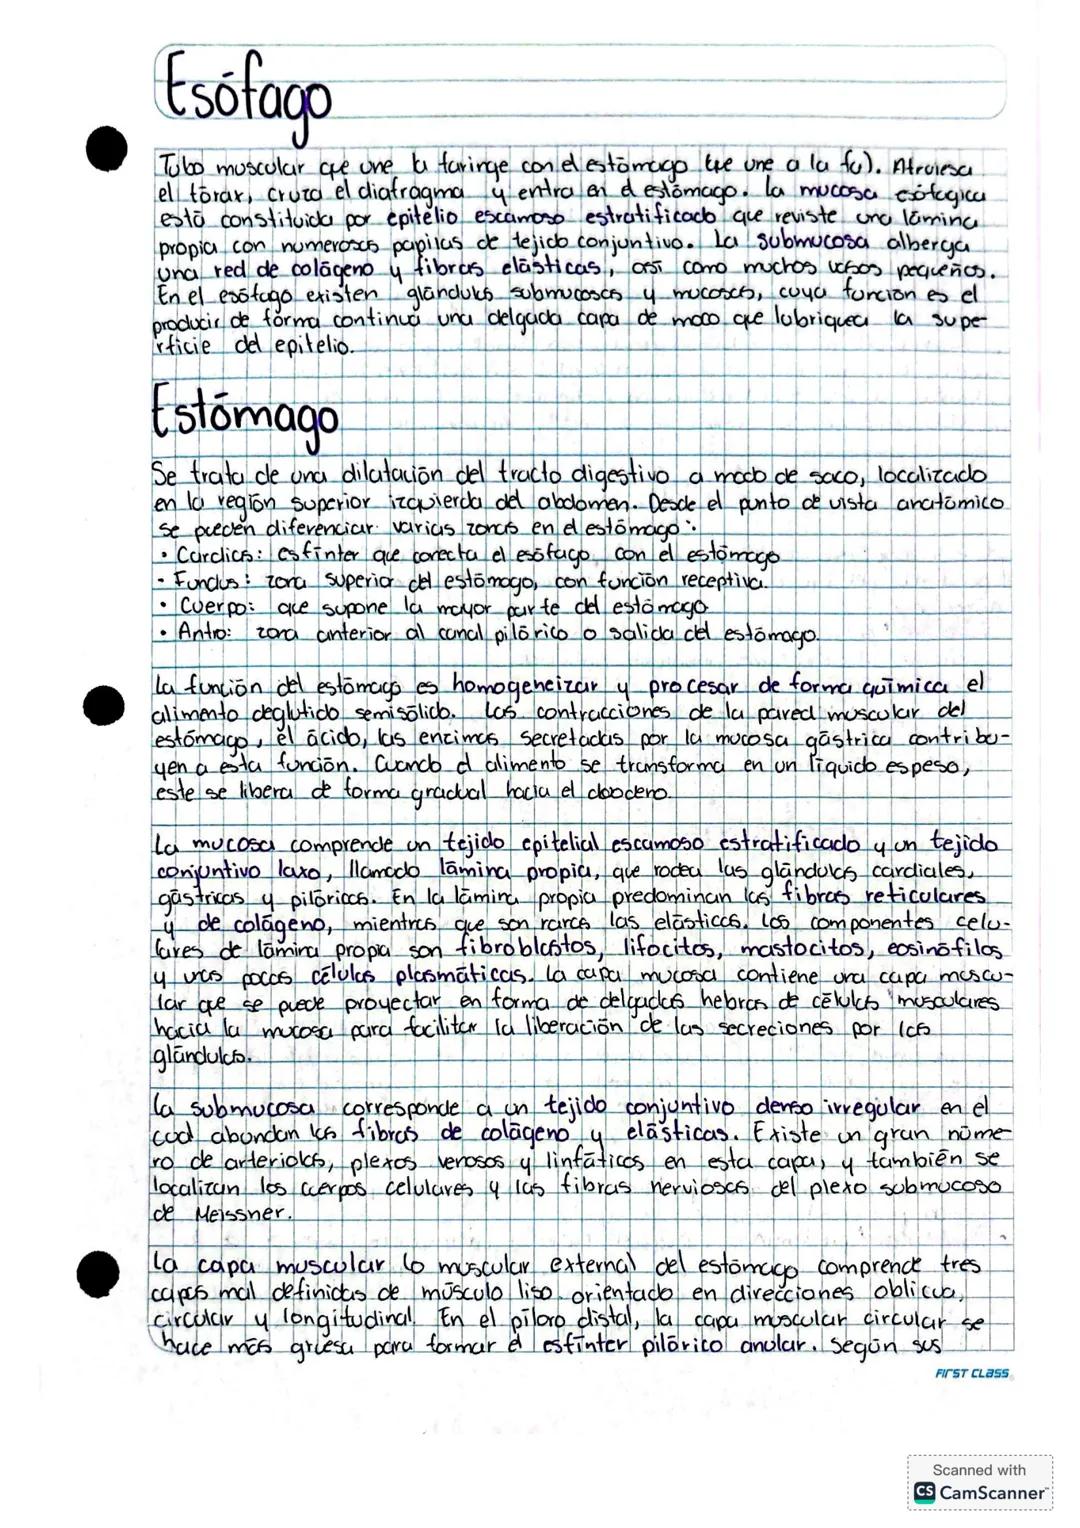 Esófago
Tubo muscular que une la faringe con el estómago (que une a la fa). Atraviesa
el tórax, cruza el diafragma y entra en el estómago. La mucosa esófagica
está constituida por epitelio escamoso estratificado que reviste una lámina
propia con numerosas papilas de tejido conjuntivo. La submucosa alberga
una red de colágeno y fibras elásticas, así como muchos vasos pequeños.
En el esófago existen glándulas submucosas y mucosas, cuya función es el
producir de forma continua una delgada capa de moco que lubriquea la supe-
rficie del epitelio.
Estómago
Se trata de una dilatación del tracto digestivo a modo de saco, localizado
en la región superior izquierda del abdomen. Desde el punto de vista anatómico
se pueden diferenciar varias zonas en el estómago:
• Cardias: esfínter que conecta el esófago con el estómago
• Fundus: zona superior del estómago, con función receptiva.
• Cuerpo: que supone la mayor parte del estómago
• Antro: zona anterior al canal pilórico o salida del estómago.
La función del estómago es homogeneizar y procesar de forma química el
alimento deglutido semisólido. Las contracciones de la pared muscular del
estómago, el ácido, las enzimas secretadas por la mucosa gástrica contribu-
yen a esta función. Cuando el alimento se transforma en un líquido espeso,
este se libera de forma gradual hacia el duodeno.
La mucosa comprende un tejido epitelial escamoso estratificado y un tejido
conjuntivo laxo, llamado lámina propia, que rodea las glándulas cardiales,
gástricas y pilóricas. En la lámina propia predominan las fibras reticulares
y de colágeno, mientras que son raras las elásticas. Los componentes celu-
lares de lámina propia son fibroblastos, lifocitos, mastocitos, eosinófilos
y unas pocas células plasmáticas. La capa mucosa contiene una capa muscu-
lar que se puede proyectar en forma de delgadas hebras de células musculares
hacia la mucosa para facilitar la liberación de las secreciones por las
glándulas.
La submucosa corresponde a un tejido conjuntivo denso irregular en el
cual abundan las fibras de colágeno y elásticas. Existe un gran núme-
ro de arteriolas, plexos venosos y linfáticos en esta capa, y también se
localizan los cuerpos celulares y las fibras nerviosas del plexo submucoso
de Meissner.
La capa muscular (o muscular externa) del estómago comprende tres
capas mal definidas de músculo liso orientado en direcciones oblicua,
circular y longitudinal. En el píloro distal, la capa muscular circular se
hace más gruesa para formar el esfínter pilórico anular. Según sus
FIRST CLASS
Scanned with
CS CamScanner